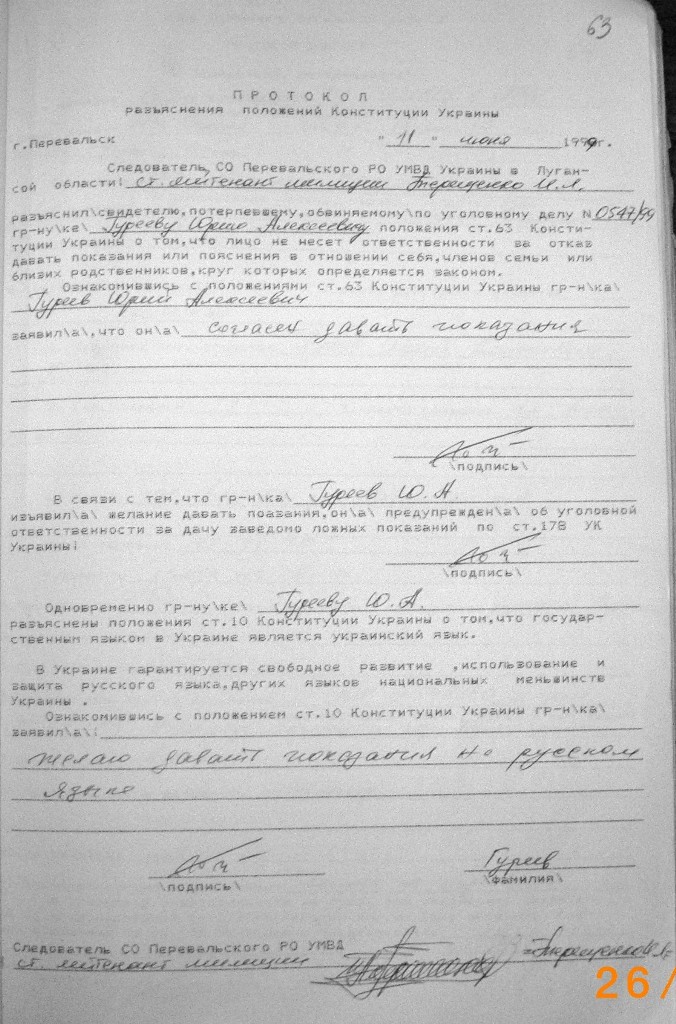 63
П Р О Т О К О Л
разъяснения положений Конституции Украины
г.Перевальск "11" июня 1999г.
Следователь СО Перевальского РО УМВД Украины в Луган-
сой области: ст. лейтенант милиции Терещенко И.А.
разъяснил\свидетелю,потерпевшему,обвиняемому\по уголовному делу N0547/99
гр-ну\ке\ Гурееву Юрию Алексеевичу положения ст.63 Консти-
туции Украины о том,что лицо не несет ответственности за отказ
давать показания или пояснения в отношении себя,членов семьи или
близих родственников,круг которых определяется законом.
Ознакомившись с положениями ст.63 Конституции Украины гр-н\ка\
Гуреев Юрий Алексеевич
заявил\а\,что он\а\ согласен давать показания
\подпись\
В связи с тем,что гр-н\ка\ Гуреев Ю.А.
изъявил\а\ желание давать поазания,он\а\ предупрежден\а\ об уголовной
ответственности за дачу заведомо ложных показаний по ст.178 УК
Украины:
\подпись\
Одновременно гр-ну\ке\ Гурееву Ю.А.
разъяснены положения ст.10 Конституции Украины о том,что государ-
ственным языком в Украине является украинский язык.
В Украине гарантируется свободное развитие ,использование и
защита русского языка,других языков национальных меньшинств
Украины .
Ознакомившись с положением ст.10 Конституции Украины гр-н\ка\
заявил\а\:
желаю давать показания на русском
языке
Гуреев
\подпись\ \фамилия\
Следователь СО Перевальского РО УМВД
ст. лейтенант милиции Терещенко И.А.
26/